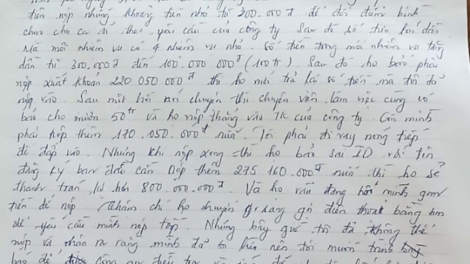 tiền nộp những khoản tiền nhỏ từ 200.000đ để đổi điểm bình
chọn cho ca sĩ theo yêu cầu của công ty. Sau đó số tiền lớn dần
Mã mỗi nhiệm vụ có 4 nhiệm vụ nhỏ. Số tiền trong mỗi nhiệm vụ tăng
dần từ 300.000đ đến 100.000.000đ (100tr). Sau đó họ báo phải
nộp xuất khoản 220.050.000đ thì họ mới trả lại số tiền mà tôi đã
nộp vào. Sau một hồi nói chuyện thì chuyên viên làm việc cùng có
báo cho mượn 50tr và họ nộp thẳng vào TK của công ty. Còn mình
phải nộp thêm 170.050.000đ nữa. Tôi phải đi vay nóng tiếp
để đắp vào. Nhưng khi nộp xong thì họ báo sai ID với tên
đăng ký ban đầu cần nộp thêm 275.160.000đ nữa thì họ sẽ
thanh toán lại hơn 800.000.000đ. Và họ vẫn đang hối mình gom
tiền để nộp. Thậm chí họ chuyển sang gọi điện thoại bằng
để yêu cầu mình nộp tiếp. Nhưng bây giờ tôi đã không thể
nộp và nhận ra rằng mình đã bị lừa nên tôi muốn trình
báo để công an điều tra